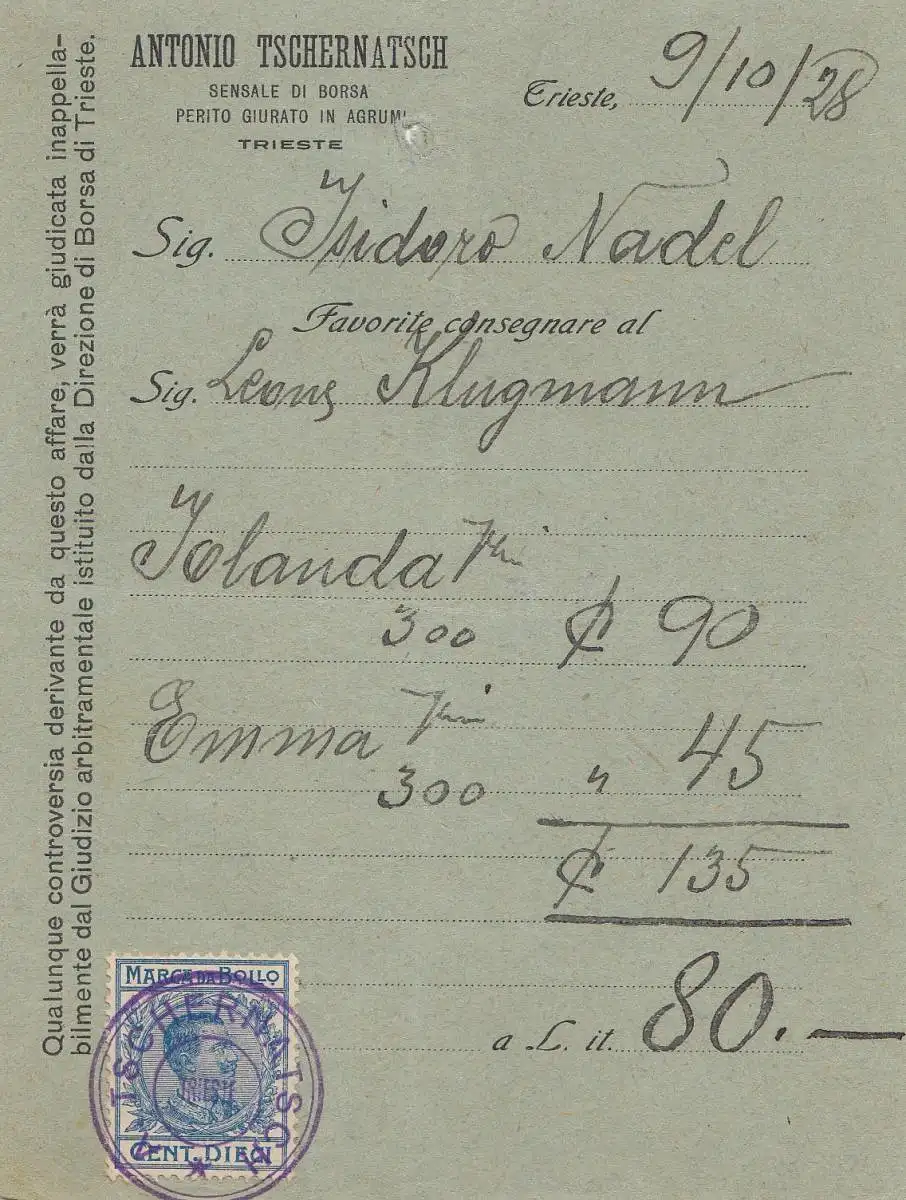 ANTONIO TSCHERNATSCH
SENSALE DI BORSA
PERITO GIURATO IN AGRUMI
TRIESTE
Trieste, 9/10/28
Sig. Isidoro Nadel
Favorite consegnare al
Sig. Leone Klugmann
Iolanda
300 ₵ 90
Emma
300 " 45
₵ 135
a L. it. 80.—
Qualunque controversia derivante da questo affare, verrà giudicata inappella-
bilmente dal Giudizio arbitramentale istituito dalla Direzione di Borsa di Trieste.
MARCA DA BOLLO
A. TSCHERNATSCH
TRIESTE
CENT. DIECI